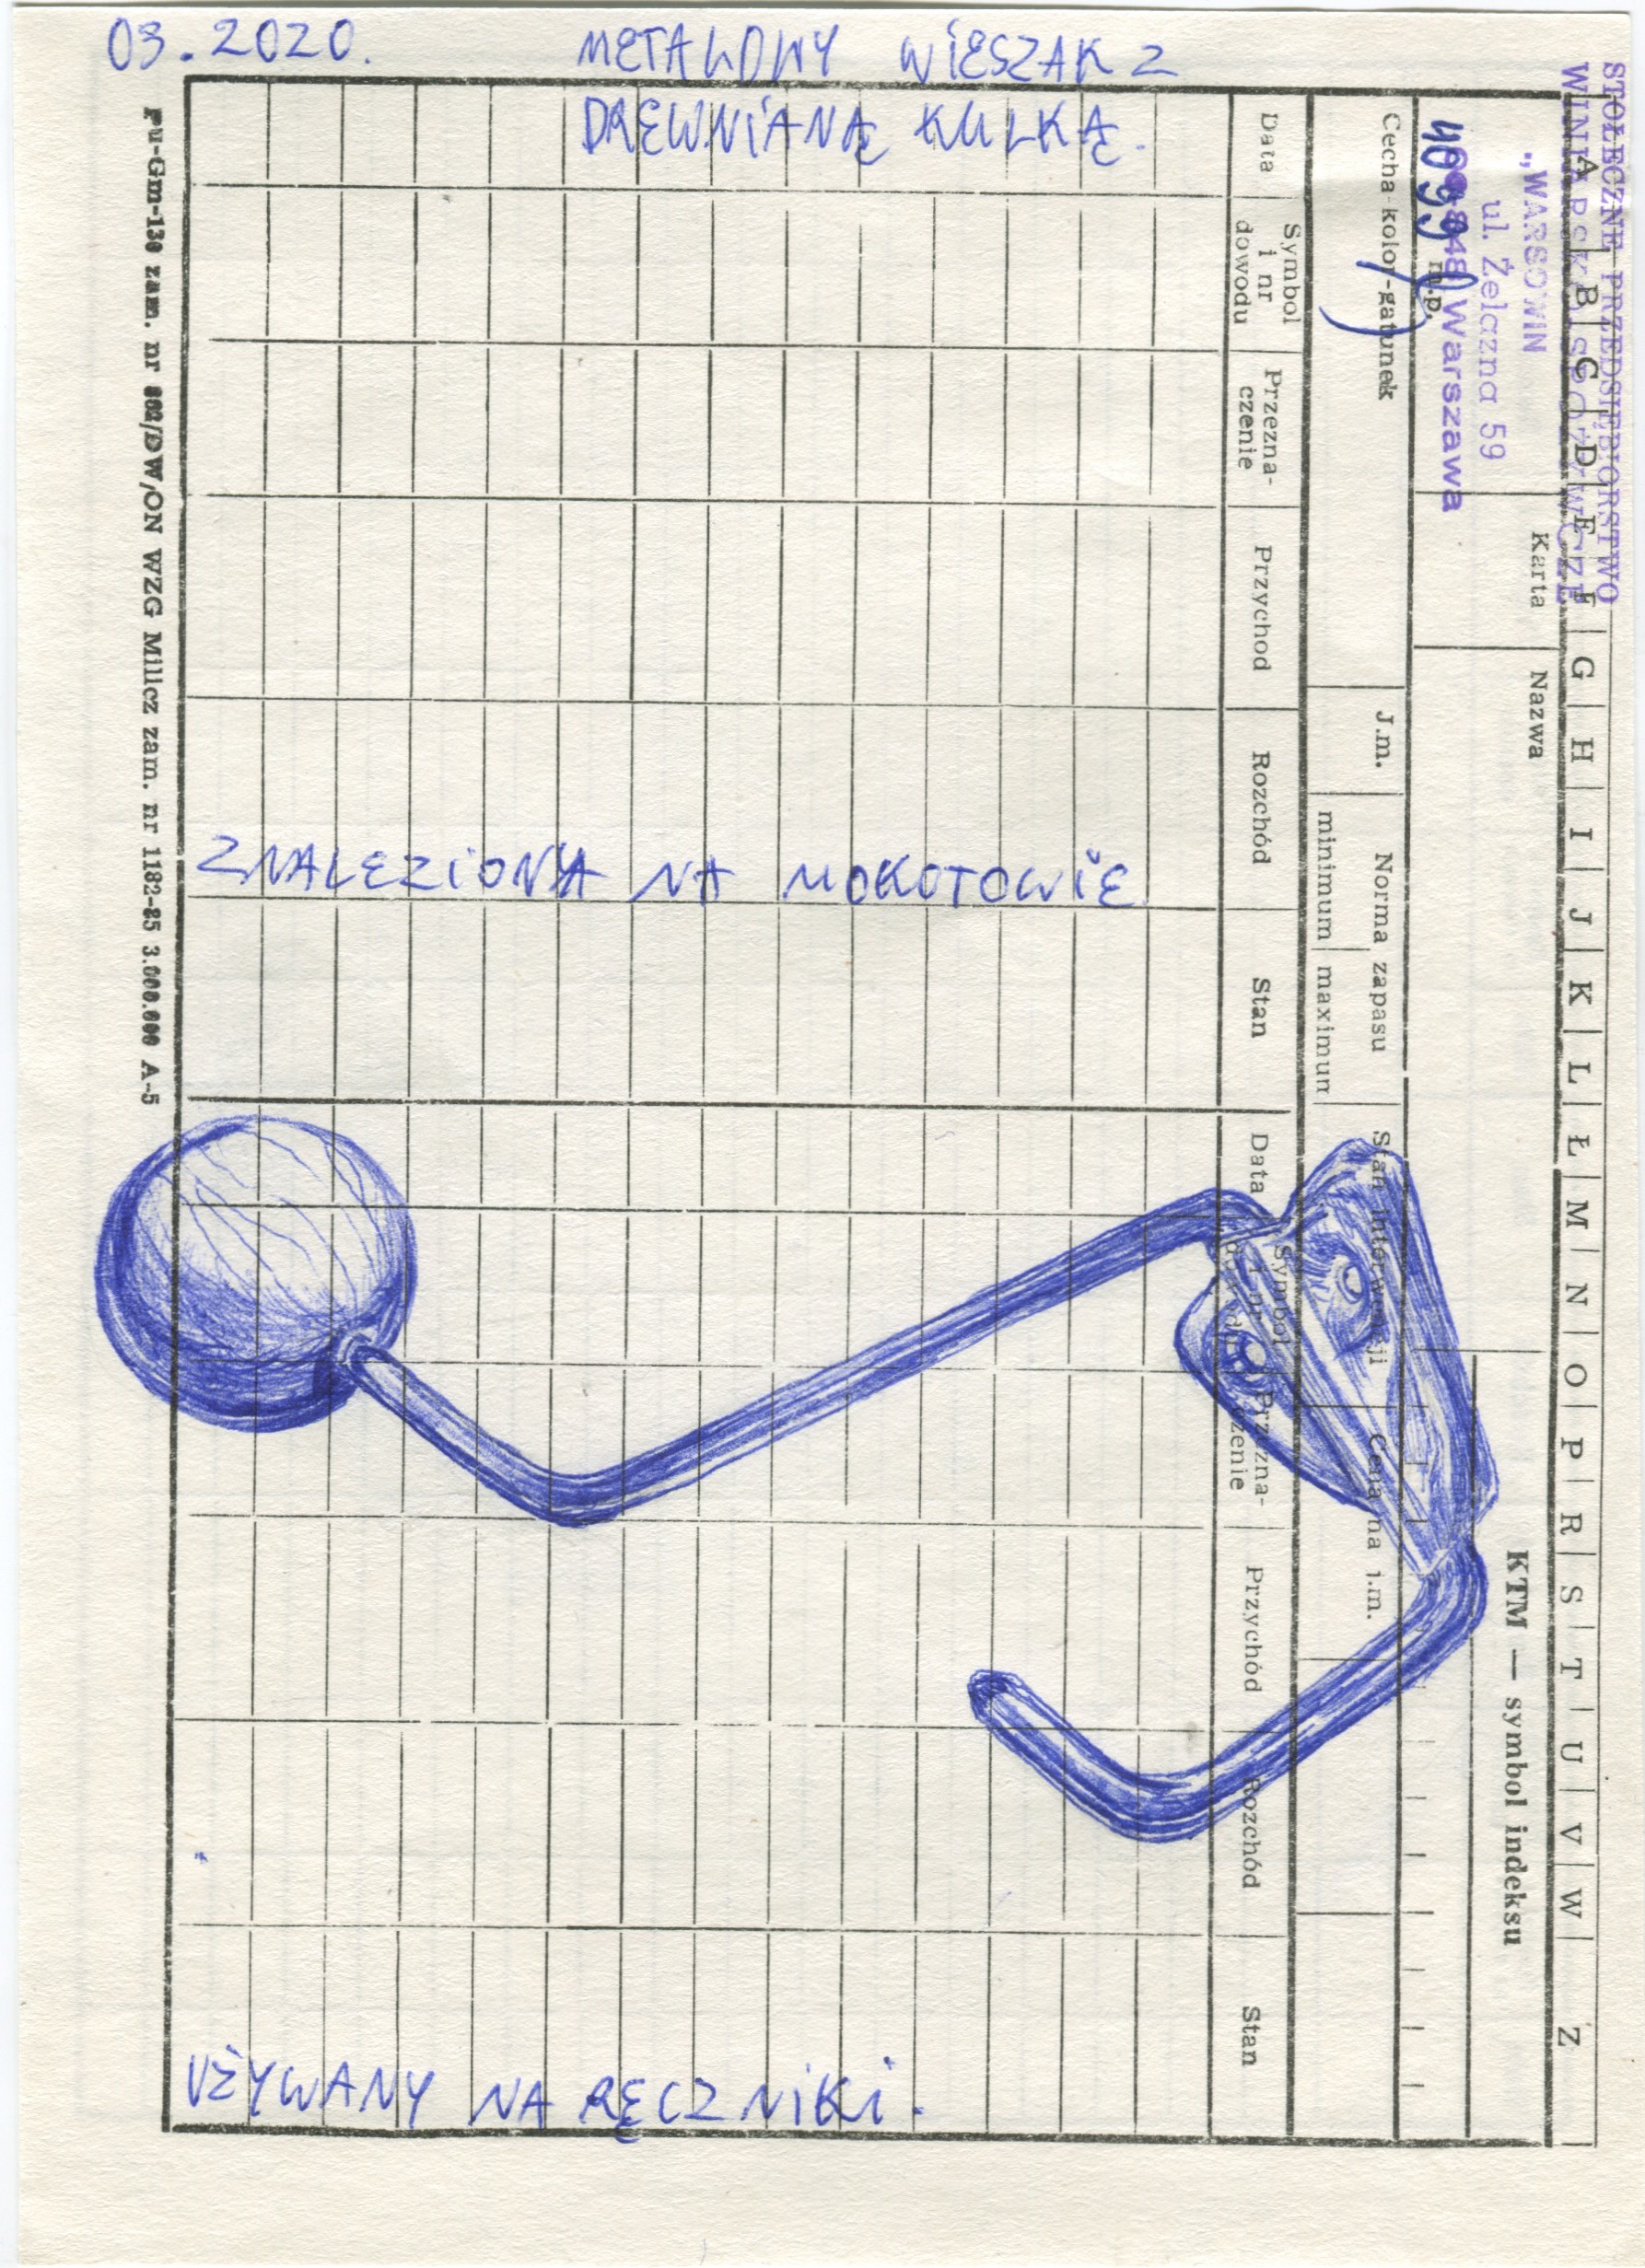 03.2020.
METALOWY WIESZAK Z
DREWNIANĄ KULKĄ.
ZNALEZIONY NA MOKOTOWIE
UŻYWANY NA RĘCZNIKI.
STOŁECZNE PRZEDSIĘBIORSTWO
WINIARSKO SPOŻYWCZE
„WARSOWIN
ul. Żelazna 59
Warszawa
4099
m.p.
A B C D E F G H I J K L Ł M N O P R S T U V W Z
Karta
Nazwa
KTM — symbol indeksu
Cecha-kolor-gatunek
J.m.
Norma zapasu
minimum
maximum
Stan interwencji
Cena na 1.m.
Data
Symbol
i nr
dowodu
Przezna-
czenie
Przychod
Rozchód
Stan
Data
Symbol
i nr
dowodu
Przezna-
czenie
Przychód
Rozchód
Stan
Pu-Gm-130 zam. nr 802/DW/ON WZG Milicz zam. nr 1182-85 3.000.000 A-5